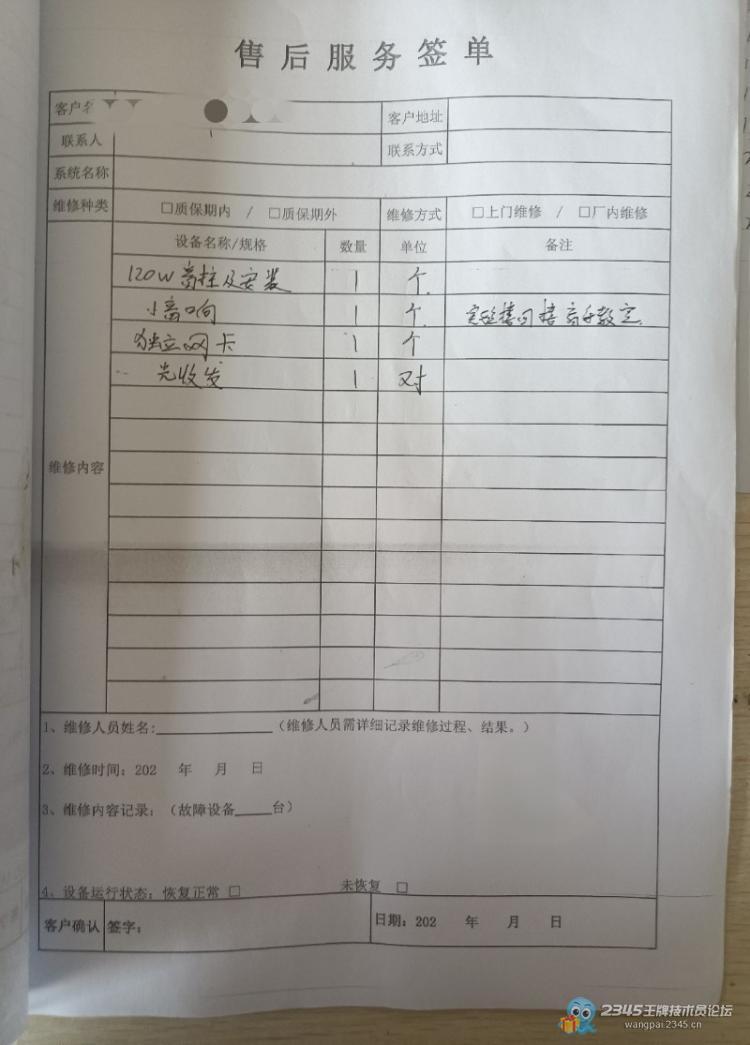 售后服务签单
客户名 客户地址
联系人 联系方式
系统名称
维修种类 □质保期内 / □质保期外 维修方式 □上门维修 / □厂内维修
设备名称/规格 数量 单位 备注
120W音柱及安装 1 个
小音响 1 个
独立网卡 1 个
光收发 1 对
维修内容
1、维修人员姓名:____________（维修人员需详细记录维修过程、结果。）
2、维修时间：202 年 月 日
3、维修内容记录：（故障设备____台）
4、设备运行状态：恢复正常 □ 未恢复 □
客户确认 签字： 日期：202 年 月 日
2345王牌技术员论坛
wangpai.2345.cn